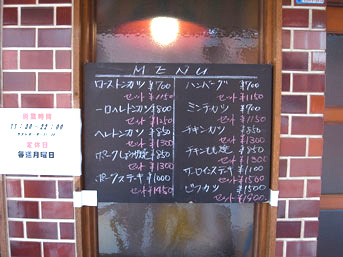 営業時間
11:30-22:00
定休日
毎週月曜日
MENU
ローストンカツ ¥700
セット ¥1150
一口ヒレトンカツ ¥800
セット ¥1250
ヘレトンカツ ¥850
セット ¥1300
ポークしょうが焼 ¥850
セット ¥1300
ポークステーキ ¥1000
セット ¥1450
ハンバーグ ¥700
セット ¥1150
ミンチカツ ¥700
セット ¥1150
チキンカツ ¥850
セット ¥1300
チキンもも焼 ¥850
セット ¥1300
サーロインステーキ ¥1100
セット ¥1550
ビフカツ ¥1500
セット ¥1900